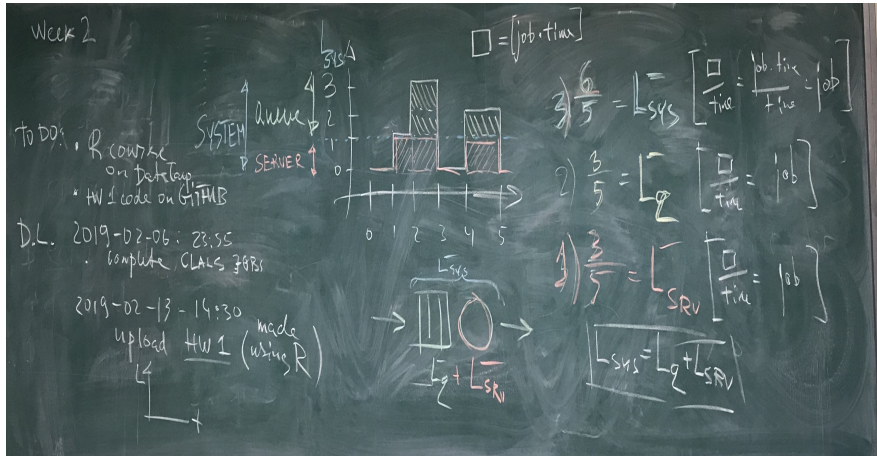 Week 2
TO DO:
• R course
on DataCamp
• HW1 code on GITHUB
D.L. 2019-02-06: 23:55
• complete
2019-02-13 - 14:30
upload HW1 (made using R)
L
t
SYSTEM
Queue
SERVER
Lsys
3
2
1
0
0 1 2 3 4 5
Lsys
Lq + LSRV
□ = [job·time]
3) 6/5 = Lsys [□/time = job·time/time = job]
2) 3/5 = Lq [□/time = job]
1) 3/5 = LSRV [□/time = job]
Lsys = Lq + LSRV